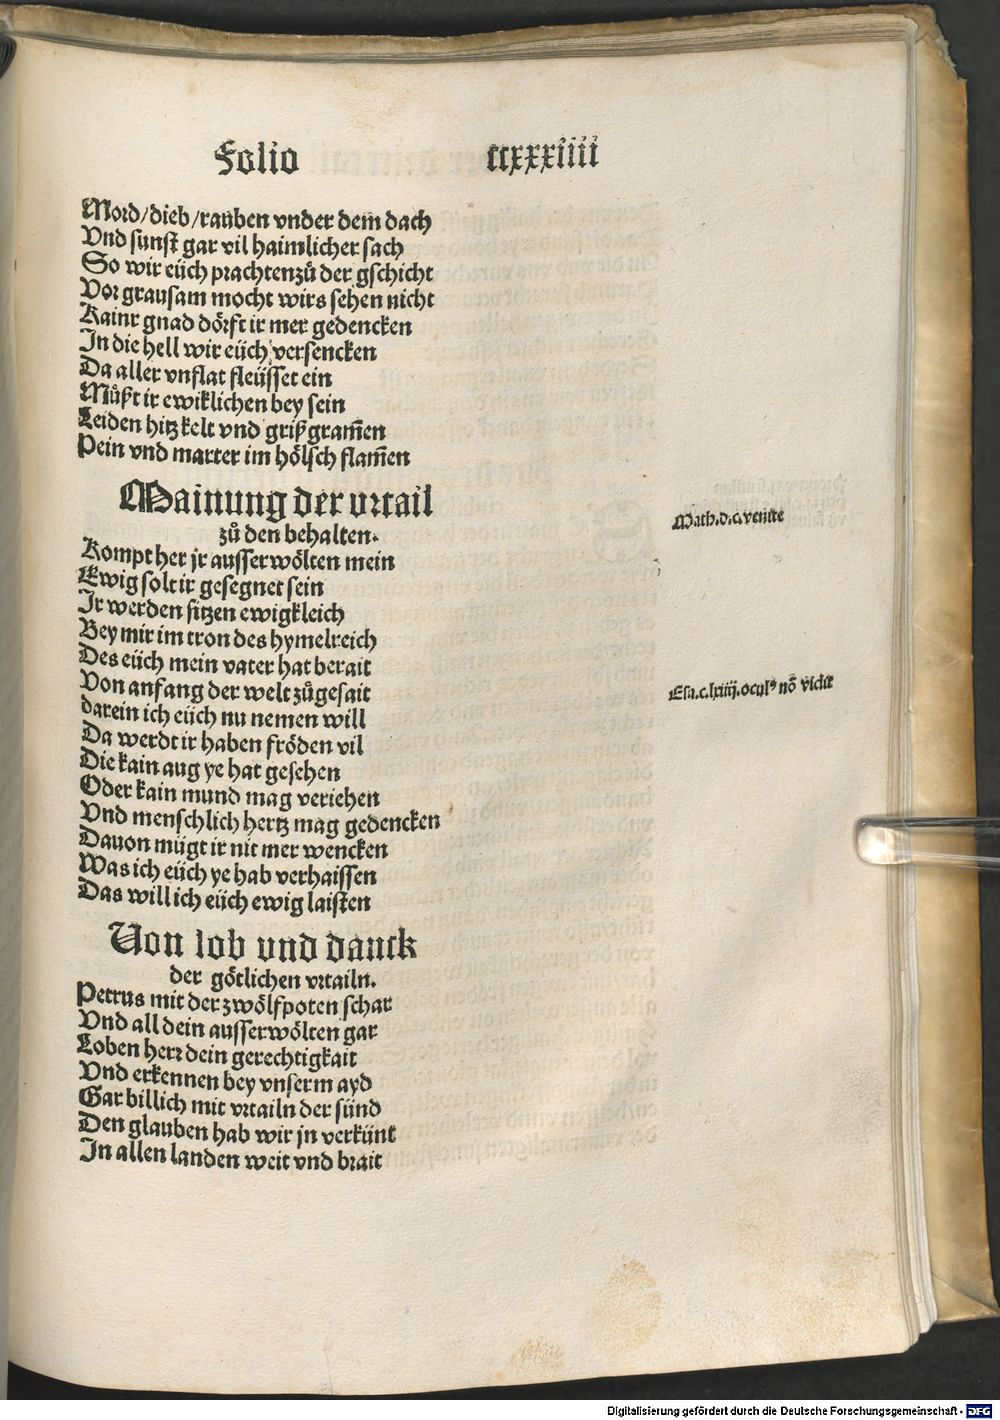 Folio ccxxxiiii
Mord/dieb/rauben vnder dem dach
Vnd sunst gar vil haimlicher sach
So wir eüch prachten zů der gschicht
Vor grausam mocht wirs sehen nicht
Kainr gnad dörft ir mer gedencken
In die hell wir eüch versencken
Da aller vnflat fleüsset ein
Můßt ir ewiklichen bey sein
Leiden hitz kelt vnd grißgram̃en
Pein vnd marter im hölsch flam̃en
Mainung der vrtail
zů den behalten.
Kompt her jr ausserwölten mein
Ewig solt ir gesegnet sein
Ir werden sitzen ewigkleich
Bey mir im tron des hymelreich
Des eüch mein vater hat berait
Von anfang der welt zůgesait
darein ich eüch nu nemen will
Da werdt ir haben fröden vil
Die kain aug ye hat gesehen
Oder kain mund mag veriehen
Vnd menschlich hertz mag gedencken
Dauon mügt ir nit mer wencken
Was ich eüch ye hab verhaissen
Das will ich eüch ewig laisten
Von lob vnd danck
der götlichen vrtailn.
Petrus mit der zwölfpoten schar
Vnd all dein ausserwölten gar
Loben herr dein gerechtigkait
Vnd erkennen bey vnserm ayd
Gar billich mit vrtailn der sünd
Den glauben hab wir jn verkünt
In allen landen weit vnd brait
Math. venite
Esa.c.lxiiij. oculꝰ nō vidit
Digitalisierung gefördert durch die Deutsche Forschungsgemeinschaft - DFG